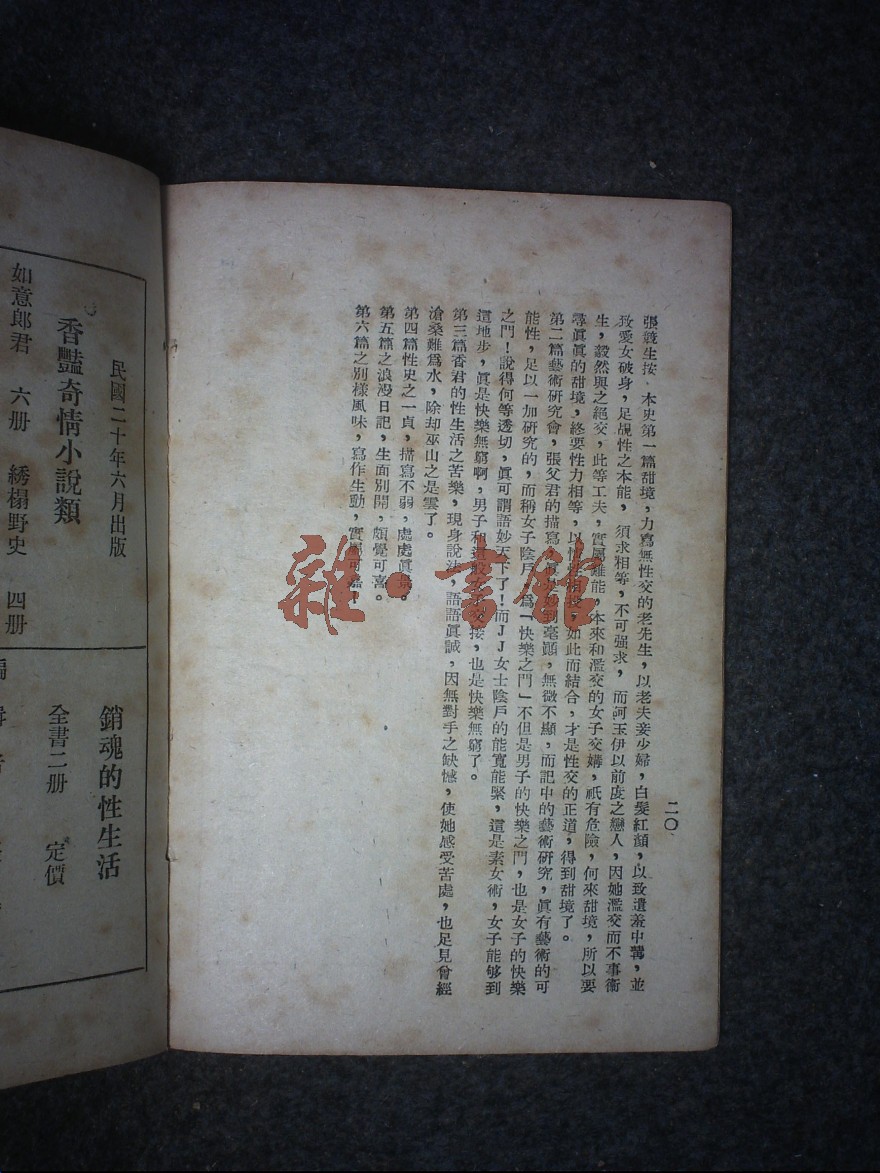 二〇
張競生按、本史第一篇甜境，力寫無性交的老先生，以老夫妾少婦，白髮紅顏，以致遺羞中冓，並
致愛女破身，足覘性之本能，須求相等，不可强求，而訶玉伊以前度之戀人，因她濫交而不事衞
生，毅然與之絕交，此等工夫，實屬難能，本來和濫交的女子交媾，祇有危險，何來甜境，所以要
尋眞眞的甜境，終要性力相等，以性相投，如此而結合，才是性交的正道，得到甜境了。
第二篇藝術研究會，張父君的描寫，到毫顚，無微不顯，而記中的藝術研究，眞有藝術的可
能性，足以一加研究的，而稱女子陰戶，爲「快樂之門」不但是男子的快樂之門，也是女子的快樂
之門！說得何等透切，眞可謂語妙天下了！而ＪＪ女士陰戶的能寬能緊，這是素女術，女子能够到
這地步，眞是快樂無窮啊，男子和這般女子交接，也是快樂無窮了。
第三篇香君的性生活之苦樂，現身說法，語語眞誠，因無對手之缺憾，使她感受苦處，也足見曾經
滄桑難爲水，除却巫山之是雲了。
第四篇性史之一貞，描寫不弱，處處眞景。
第五篇之浪漫日記，生面別開，頗覺可喜。
第六篇之别樣風味，寫作生動，實屬可嘉！
民國二十年六月出版
香豔奇情小說類
如意郎君　六册　綉榻野史　四册
銷魂的性生活
全書二册　定價
編
雜·書館